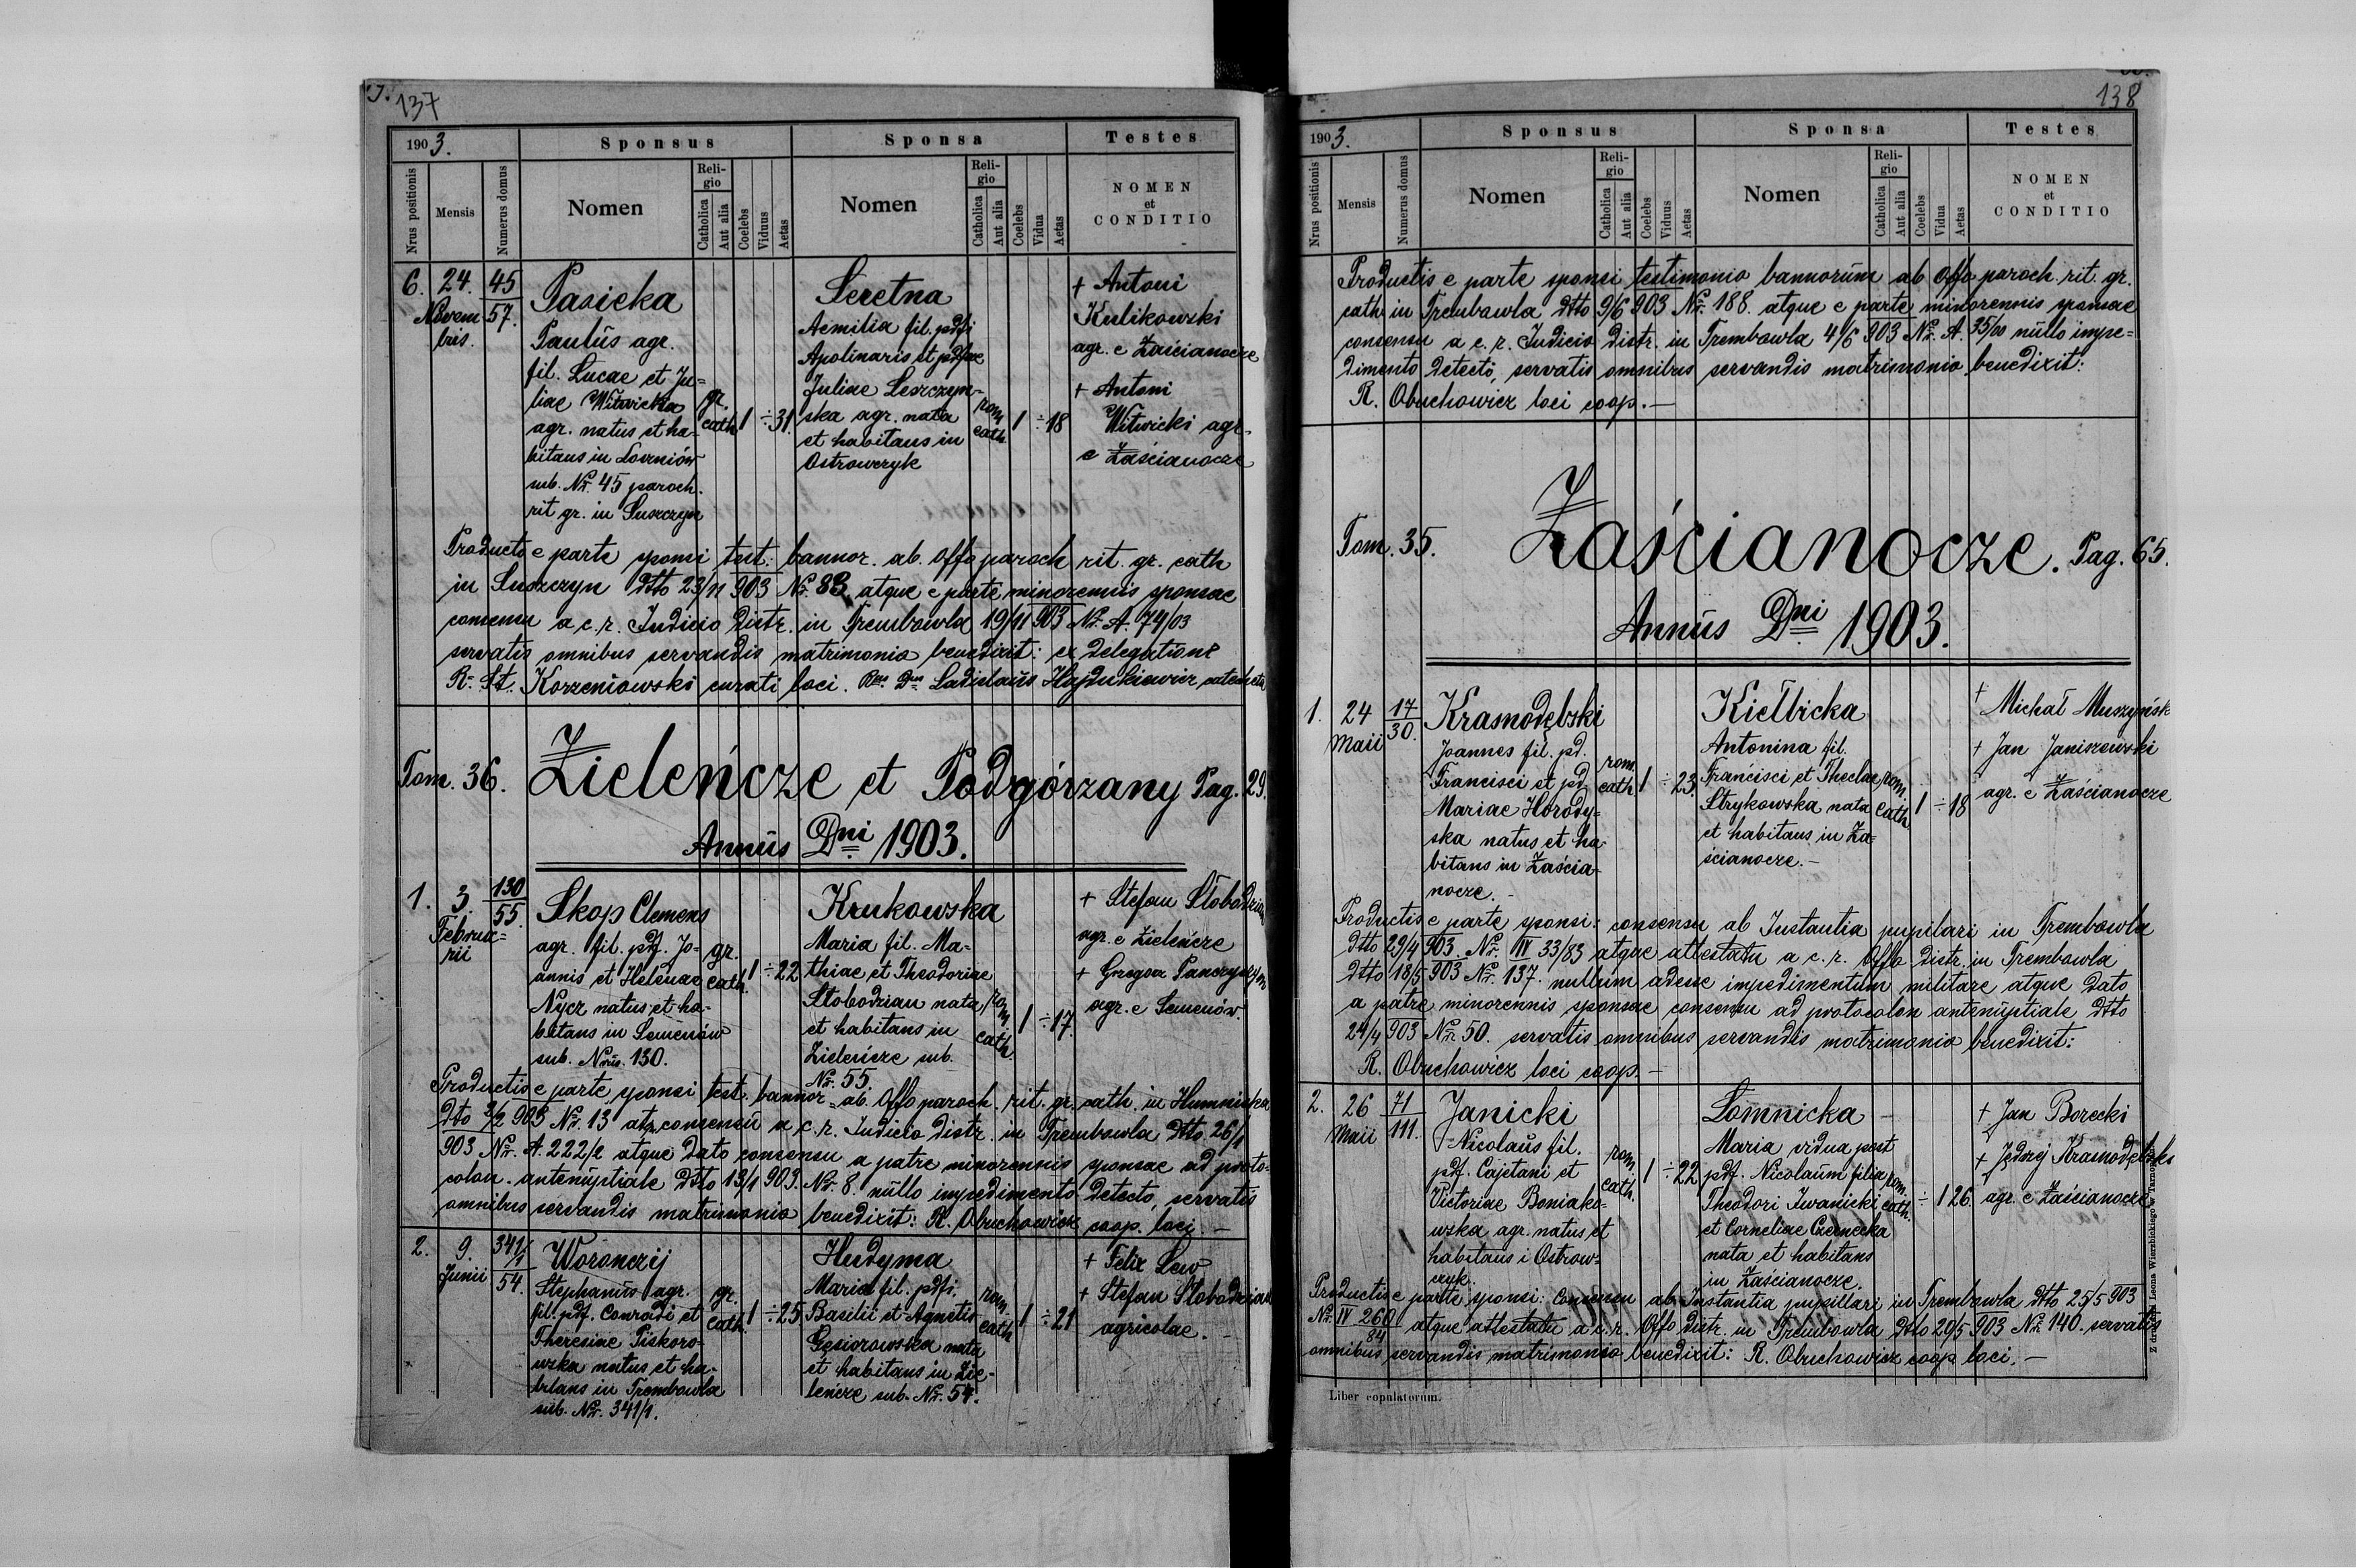 137
1903.
Sponsus
Sponsa
Testes
Nrus positionis
Mensis
Numerus domus
Nomen
Religio
Catholica
Aut alia
Coelebs
Viduus
Aetas
Nomen
Religio
Catholica
Aut alia
Coelebs
Vidua
Aetas
NOMEN
et
CONDITIO
6. 24. 45
Novem 57.
bris.
Pasicka
Paulus agr.
fil. Lucae et Ju=
liae Witwicka
agr. natus et ha-
bitans in Loszniów
sub. Nr. 45 paroch.
rit gr. in Suszczyn
gr.
cath. 1 ÷ 31.
Seretna
Aemilia fil. pdfi
Apolinaris et pdfae
Juliae Leszczyn-
ska agr. nata
et habitans in
Ostrowczyk
rom
cath. 1 ÷ 18
+ Antoni
Kulikowski
agr. e Zaścianocze
+ Antoni
Witwicki agr.
e Zaścianocze
Producto e parte sponsi test: bannor. ab. Offo paroch rit. gr. cath
in Suszczyn dtto 23/11 903 Nr. 83 atque e parte minorennis sponsae
consensu a c. r. Judicio Distr. in Trembowla 19/11 903 Nr. A. 74/03
servatis omnibus servandis matrimonio benedixit: ex delegatione
R. St. Korzeniowski curati loci. Rus. Dus Ladislaus Hajdukiewicz catecheta
Tom. 36. Zieleńcze et Podgórzany Pag. 29.
Annus Dni 1903.
1. 3. 130
Februa= 55.
rii
Skop Clemens
agr. fil. pdf. Jo-
annis et Helenae
Nycz natus et ha-
bitans in Semenów
sub. Nrus. 130.
gr.
cath. 1 ÷ 22
Krukowska
Maria fil. Ma-
thiae et Theodoriae
Słobodzian nata
et habitans in
Zieleńcze sub.
Nr. 55.
rom.
cath. 1 ÷ 17.
+ Stefan Słobodzian
agr. e Zieleńcze
+ Gregor Panczyszyn
agr. e Semenów.
Productis e parte sponsi test. bannor ab. Offo paroch. rit. gr. cath. in Humniska
dto 2/2 903 Nr. 13 atq. consensu a c. r. Judicio distr. in Trembowla dtto. 26/1
903 Nr. A. 222/2 atque dato consensu a patre minorennis sponsae ad proto-
colon. antenuptiale dtto 13/1 903. Nr. 8. nullo impedimento detecto, servatis
omnibus servandis matrimonio benedixit: R. Obuchowicz coop. loci. —
2. 9. 341/1
Junii 54.
Woronczij
Stephanus agr.
fil. pdf. Conradi et
Theresiae Piskoro-
wska natus et ha-
bitans in Trembowla
sub. Nr. 341/1.
gr.
cath. 1 ÷ 25
Hudyma
Maria fil. pdfi.
Basilii et Agnetis
Gęsiorowska nata
et habitans in Zie-
leńcze sub. Nr. 54.
rom.
cath 1 ÷ 21
+ Felix Lew
+ Stefan Słobodzian
agricolae. —
138
1903.
Sponsus
Sponsa
Testes
Nrus positionis
Mensis
Numerus domus
Nomen
Religio
Catholica
Aut alia
Coelebs
Viduus
Aetas
Nomen
Religio
Catholica
Aut alia
Coelebs
Vidua
Aetas
NOMEN
et
CONDITIO
Productis e parte sponsi testimonio bannorum ab Offo paroch. rit. gr.
cath in Trembowla dtto 9/6 903 Nr. 188. atque e parte minorennis sponsae
consensu a c. r. Judicio distr. in Trembowla 4/6 903 Nr. A. 35/00 nullo impe=
dimento detecto, servatis omnibus servandis matrimonio benedixit:
R. Obuchowicz loci coop. —
Tom. 35. Zaścianocze. Pag. 65.
Annus Dni 1903.
1. 24 17
Maii 30.
Krasnodębski
Joannes fil. pd.
Francisci et pd.
Mariae Horody-
ska natus et ha-
bitans in Zaścia-
nocze. —
rom.
cath. 1 ÷ 23.
Kiełbicka
Antonina fil.
Francisci et Theclae
Strykowska nata
et habitans in Za=
ścianocze. —
rom.
cath. 1 ÷ 18
+ Michał Muszyńsk
+ Jan Janiszewski
agr. e Zaścianocze
Productis e parte sponsi: consensu ab Instantia pupilari in Trembowla
dtto 29/4 903. Nr. III 33/83 atque attestatu a c. r. Offo distr. in Trembowla
dtto 18/5 903 Nr. 137. nullum adesse impedimentum militare atque dato
a patre minorennis sponsae consensu ad protocolon antenuptiale dtto
24/4 903 Nr. 50. servatis omnibus servandis matrimonio benedixit:
R. Obuchowicz loci coop. —
2. 26 71
Maii 111.
Janicki
Nicolaus fil.
pdf. Cajetani et
Victoriae Boniako-
wska agr. natus et
habitans i Ostrow-
czyk.
rom.
cath. 1 ÷ 22
Łomnicka —
Maria vidua post
pdf. Nicolaum filia
Theodori Iwanicki
et Corneliae Czernecka
nata et habitans
in Zaścianocze.
rom.
cath. ÷ 1 26.
+ Jan Borecki
+ Jędrzej Krasnodębski
agr. e Zaścianocze
Productis e parte sponsi: consensu ab Instantia pupillari in Trembowla dtto 25/5 903
Nr. IV 260/84 atque attestatu a c. r. Offo distr. in Trembowla dtto 20/5 903 Nr. 140. servatis
omnibus servandis matrimonio benedixit: R. Obuchowicz coop loci. —
Liber copulatorum.
Z drukarni Leona Wierzbickiego w Tarnopolu